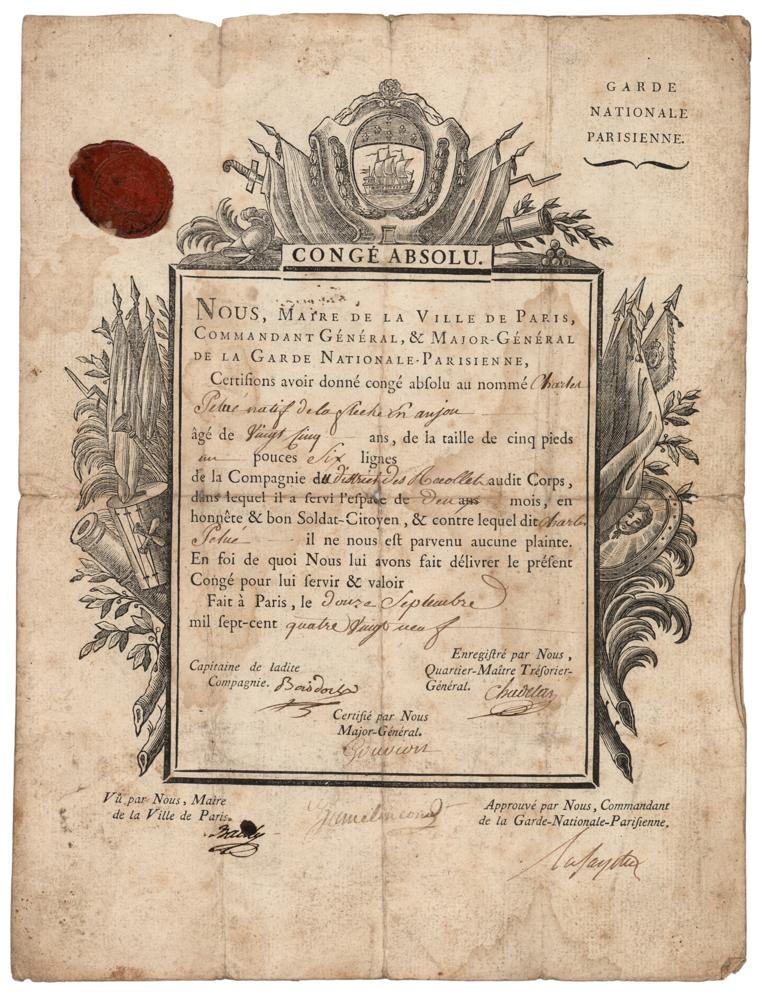 GARDE
NATIONALE
PARISIENNE.
CONGÉ ABSOLU.
NOUS, MAIRE DE LA VILLE DE PARIS,
COMMANDANT GÉNÉRAL, & MAJOR-GÉNÉRAL
DE LA GARDE NATIONALE-PARISIENNE,
Certifions avoir donné congé absolu au nommé Charles
natif de la fleche En anjou
âgé de Vingt Cinq ans, de la taille de cinq pieds
un pouces Six lignes
de la Compagnie du district des Recollets audit Corps,
dans lequel il a servi l'espace de Deux ans mois, en
honnête & bon Soldat-Citoyen, & contre lequel dit Charles
il ne nous est parvenu aucune plainte.
En foi de quoi Nous lui avons fait délivrer le présent
Congé pour lui servir & valoir
Fait à Paris, le douze Septembre
mil sept-cent quatre Vingt neuf
Capitaine de ladite
Compagnie.
Enregistré par Nous,
Quartier-Maître Trésorier-
Général.
Certifié par Nous
Major-Général.
Gouvion
Vû par Nous, Maire
de la Ville de Paris.
Bailly
Approuvé par Nous, Commandant
de la Garde-Nationale-Parisienne.
Lafayette